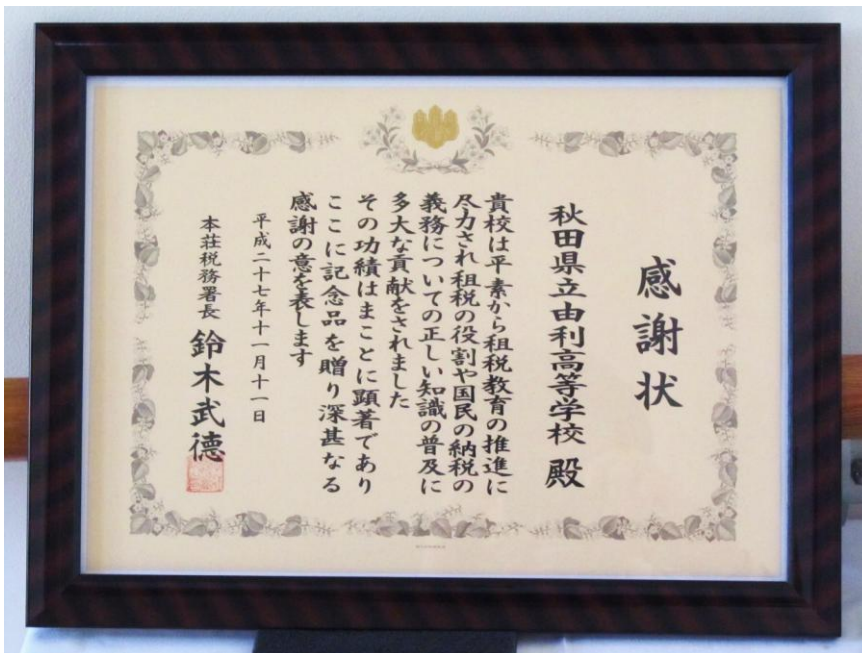 感謝状
秋田県立由利高等学校 殿
貴校は平素から租税教育の推進に
尽力され租税の役割や国民の納税の
義務についての正しい知識の普及に
多大な貢献をされました
その功績はまことに顕著であり
ここに記念品を贈り深甚なる
感謝の意を表します
平成二十七年十一月十一日
本荘税務署長 鈴木武德